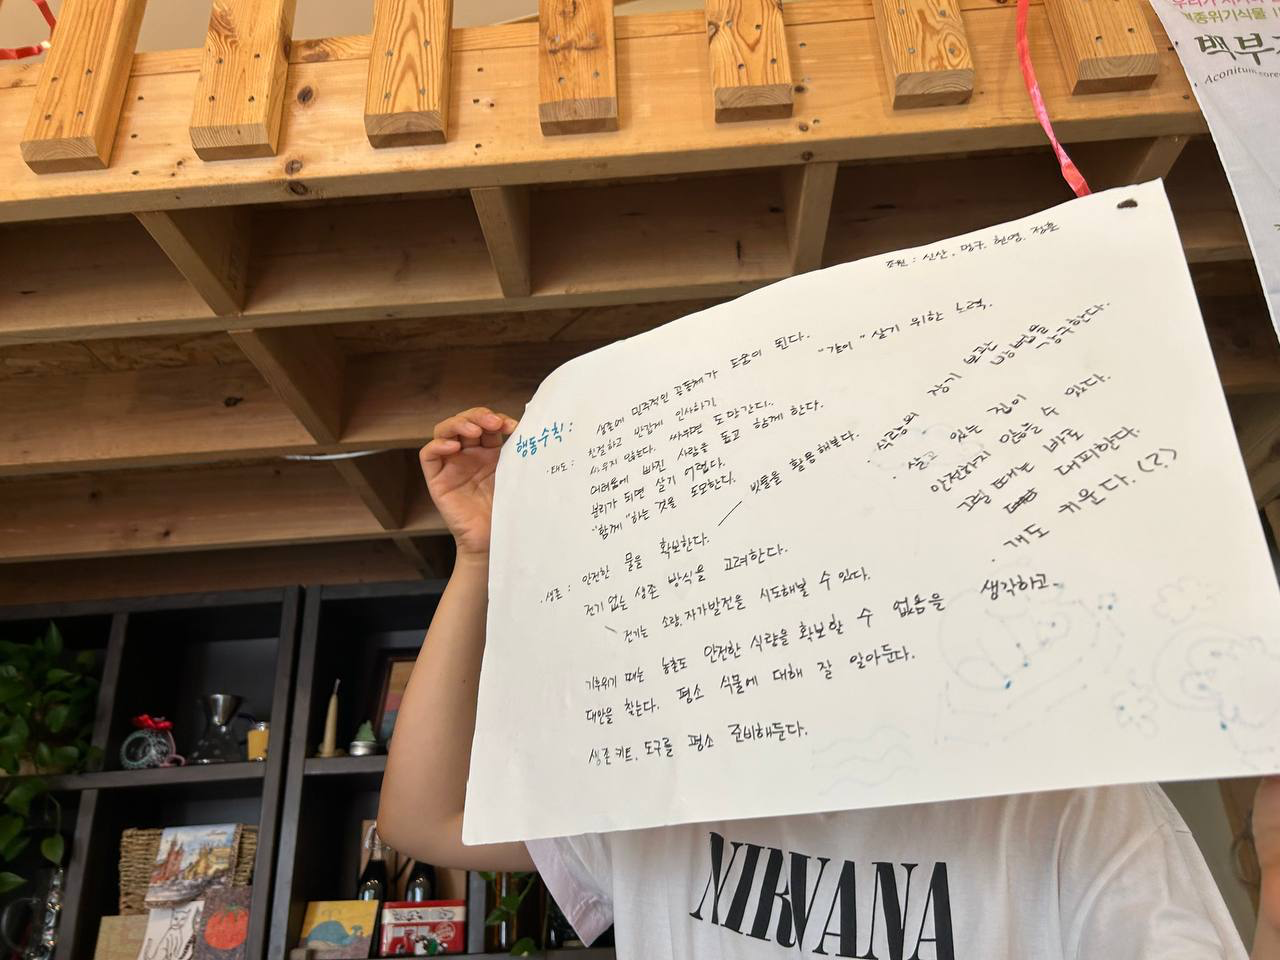 우리가 지켜야 할
멸종위기식물
백부
Aconitum core
조원 : 신산, 멍구, 현영, 정훈
행동수칙 :
생존에 민주적인 공동체가 도움이 된다.
"같이" 살기 위한 노력.
· 태도 : 친절하고 반갑게 인사하기
싸우지 않는다. 싸우면 도망간다..
어려움에 빠진 사람을 돕고 함께 한다.
분리가 되면 살기 어렵다.
"함께"하는 것을 도모한다.
· 생존 : 안전한 물을 확보한다. 빗물을 활용해본다.
전기 없는 생존 방식을 고려한다.
전기는 소량, 자가발전을 시도해볼 수 있다.
기후위기 때는 농촌도 안전한 식량을 확보할 수 없음을 생각하고
대안을 찾는다. 평소 식물에 대해 잘 알아둔다.
생존키트, 도구를 평소 준비해둔다.
· 식량의 장기 보관 방법을 강구한다.
· 살고 있는 집이
안전하지 않을 수 있다.
그럴 때는 바로
대피한다.
· 개도 키운다.(?)
NIRVANA